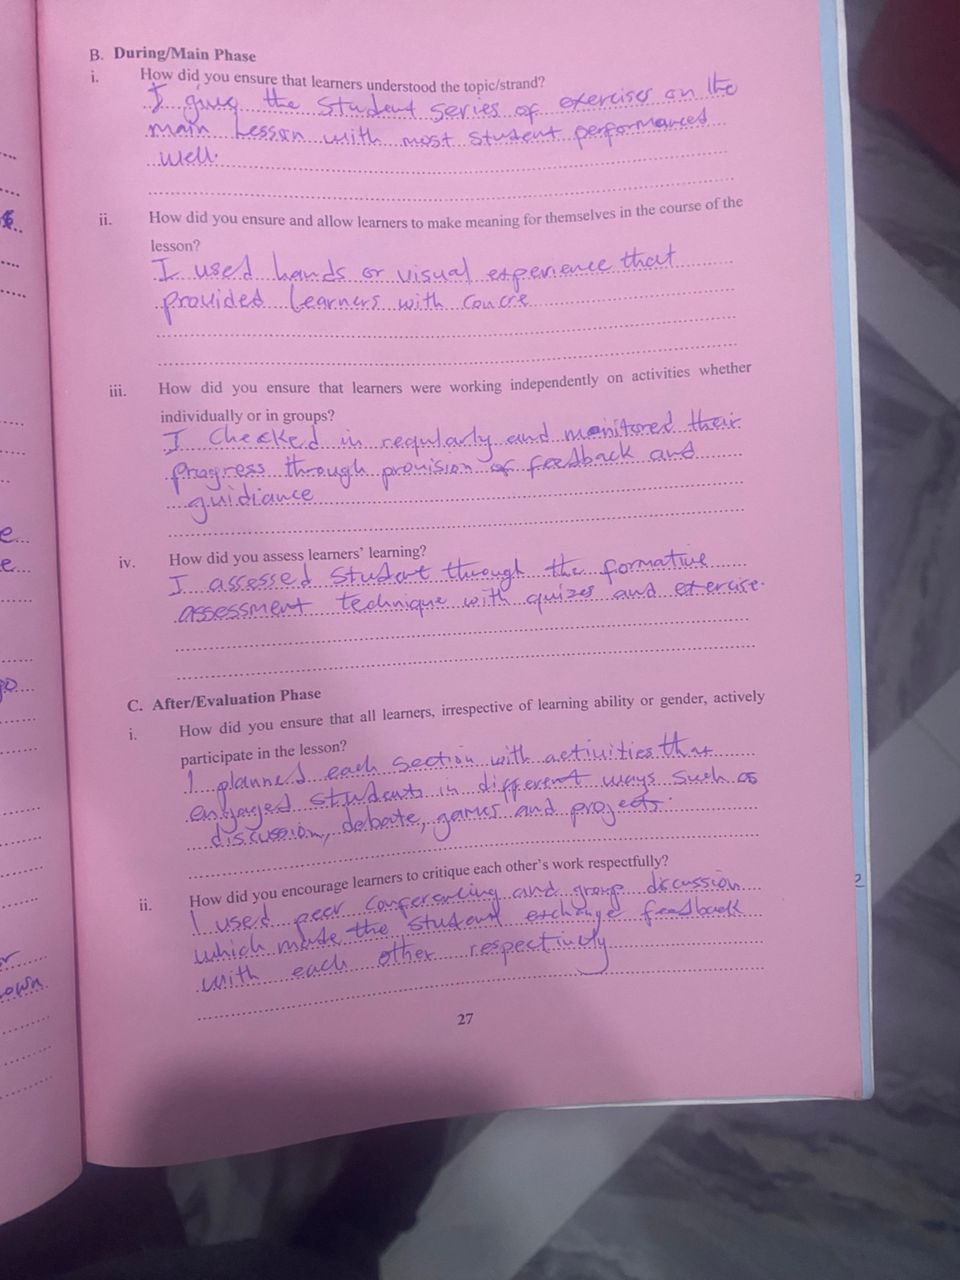 B. During/Main Phase
i. How did you ensure that learners understood the topic/strand?
I the student series of exercises on the
main lesson with most student performanced
well.
ii. How did you ensure and allow learners to make meaning for themselves in the course of the
lesson?
I used hands or visual experience that
provided learners with concre
iii. How did you ensure that learners were working independently on activities whether
individually or in groups?
I checked in regularly and monitored their
progress through provision of feedback and
guidiance
iv. How did you assess learners' learning?
I assessed student through the formative
assessment technique with quizes and exercise.
C. After/Evaluation Phase
i. How did you ensure that all learners, irrespective of learning ability or gender, actively
participate in the lesson?
I planned each section with activities that
engaged students in different ways such as
discussion, debate, games and projects.
ii. How did you encourage learners to critique each other's work respectfully?
I used peer and group discussion
which made the student exchange feedback
with each other respectively
27
e
e
own
2